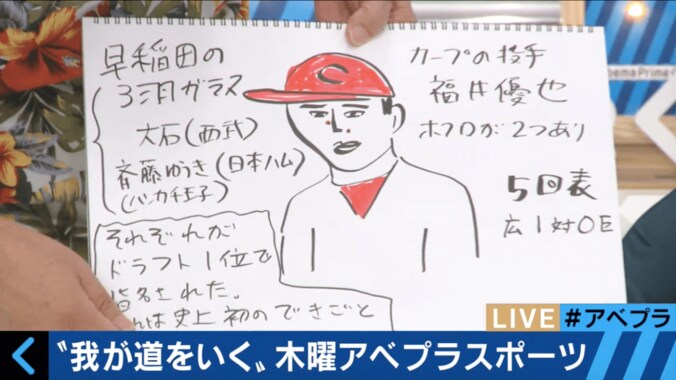 早稲田の
3羽ガラス
大石(西武)
斉藤ゆうき(日本ハム)
(ハンカチ王子)
それぞれが
ドラフト1位で
指名された。
は史上初のできごと
カープの投手
福井優也
ホクロが2つあり
5回表
広1対0E
C
bema Prime
LIVE
#アベプラ
〝我が道をいく〟木曜アベプラスポーツ